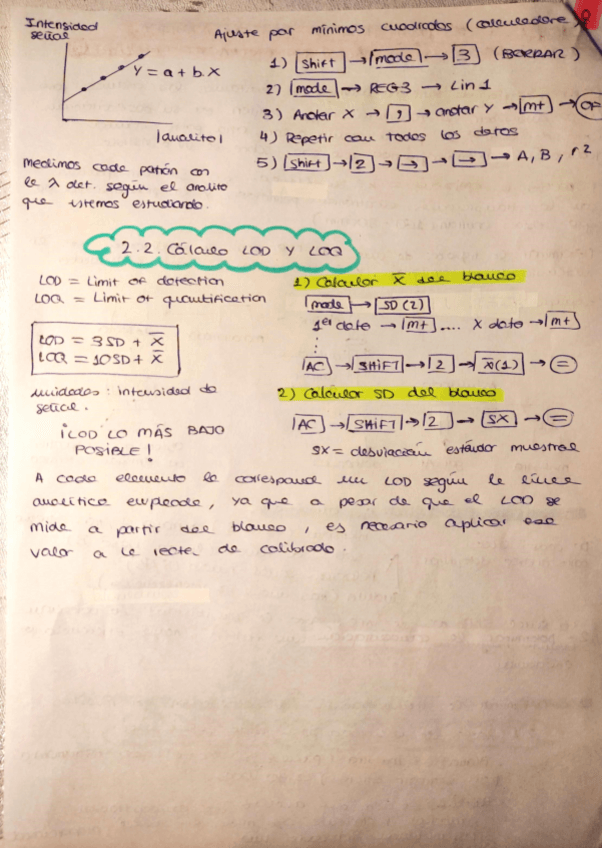 Intensidad
señal
Y = a + b.X
|analito|
Medimos cada patrón con
la λ det. según el analito
que estemos estudiando.
Ajuste por mínimos cuadrados (calculadora)
1) shift → mode → 3 (BORRAR)
2) mode → REG3 → Lin 1
3) Anotar X → , → anotar Y → m+ →
4) Repetir con todos los datos
5) shift → 2 → → → → → A, B, r²
2.2. Cálculo LOD Y LOQ
LOD = Limit of detection
LOQ = Limit of quantification
LOD = 3SD + x̅
LOQ = 10SD + x̅
unidades: intensidad de
señal.
¡LOD LO MÁS BAJO
POSIBLE!
1) Calcular x̅ del blanco
mode → SD(2)
1er dato → m+ .... X dato → m+
⋮
AC → SHIFT → 2 → x̅(1) → =
2) Calcular SD del blanco
AC → SHIFT → 2 → SX → =
SX = desviación estándar muestral
A cada elemento le corresponde un LOD según la línea
analítica empleada, ya que a pesar de que el LOD se
mide a partir del blanco, es necesario aplicar ese
valor a la recta de calibrado.